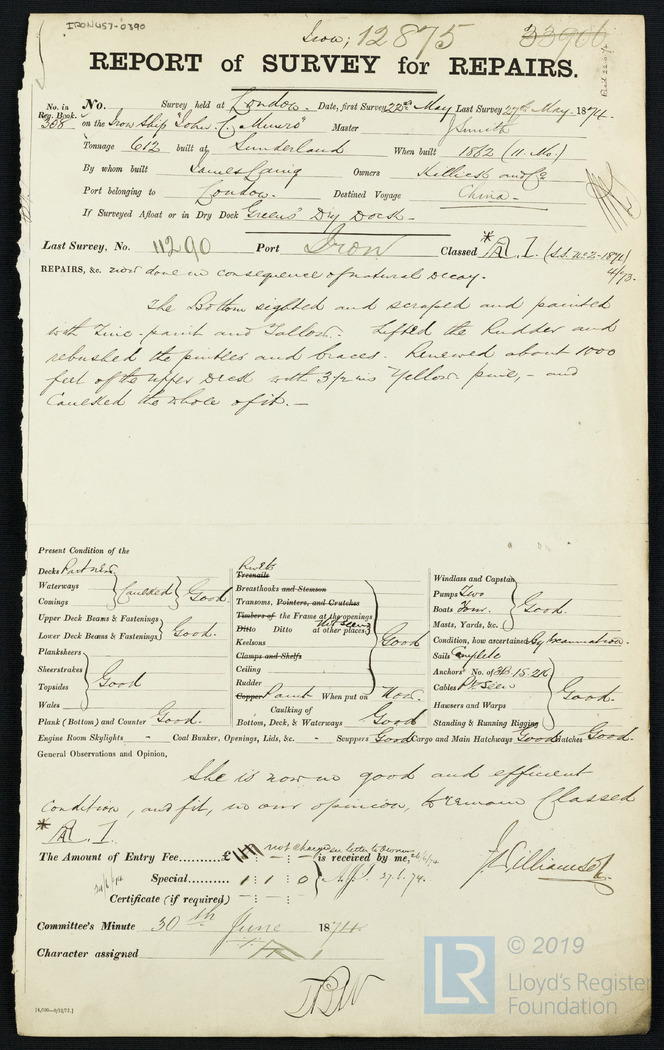 IRON457-0390
Iron; 12875 33906
REPORT of SURVEY for REPAIRS.
No. in Reg. Book. No. Survey held at London. Date, first Survey 22nd May Last Survey 27th May 1874.
308 on the Iron Ship "John C. Munro" Master J Smith
Tonnage 612 built at Sunderland When built 1862 (11. Mo.)
By whom built James Laing Owners Killick and Co
Port belonging to London. Destined Voyage China-
If Surveyed Afloat or in Dry Dock Greens Dry Dock-
Last Survey, No. 11290 Port Iron Classed *A 1. (S.S. No 2-1871) 4/73.
REPAIRS, &c. now done in consequence of natural decay.
The Bottom sighted and scraped and painted
with Zinc-paint and Tallow.- Lifted the Rudder and
rebushed the pintles and braces. Renewed about 1000
feet of the upper Deck with 3 1/2 ins Yellow pine,- and
Caulked the whole of it.-
Present Condition of the
Decks Part new
Waterways
Comings
Caulked Good.
Upper Deck Beams & Fastenings
Lower Deck Beams & Fastenings
Good.
Plansheers
Sheerstrakes
Topsides
Wales
Good
Plank (Bottom) and Counter Good.
Rivets
Treenails
Breasthooks and Stemson
Transoms, Pointers, and Crutches
Timbers of the Frame at the openings
Ditto Ditto at other places Not seen
Keelsons
Clamps and Shelfs
Ceiling
Rudder
Good
Copper Paint When put on Now.
Caulking of
Bottom, Deck, & Waterways Good
Windlass and Capstan
Pumps Two
Boats Four.
Masts, Yards, &c.
Good.
Condition, how ascertained By examination.
Sails Complete
Anchors' No. of 3B. 1S. 2K
Cables Pt. Seen
Hawsers and Warps
Standing & Running Rigging
Good.
Engine Room Skylights - Coal Bunker, Openings, Lids, &c. - Scuppers Good Cargo and Main Hatchways Good Hatches Good.
General Observations and Opinion,
She is now in good and efficient
Condition, and fit, in our opinion, to remain Classed
*A. 1.
The Amount of Entry Fee..........£ : - : - is received by me,
Special..... 1 : 1 : 0
Certificate (if required) - : - : -
Committee's Minute 30th June 1874
Character assigned
[4,000-9/12/72.]
LR
© 2019
Lloyd's Register
Foundation